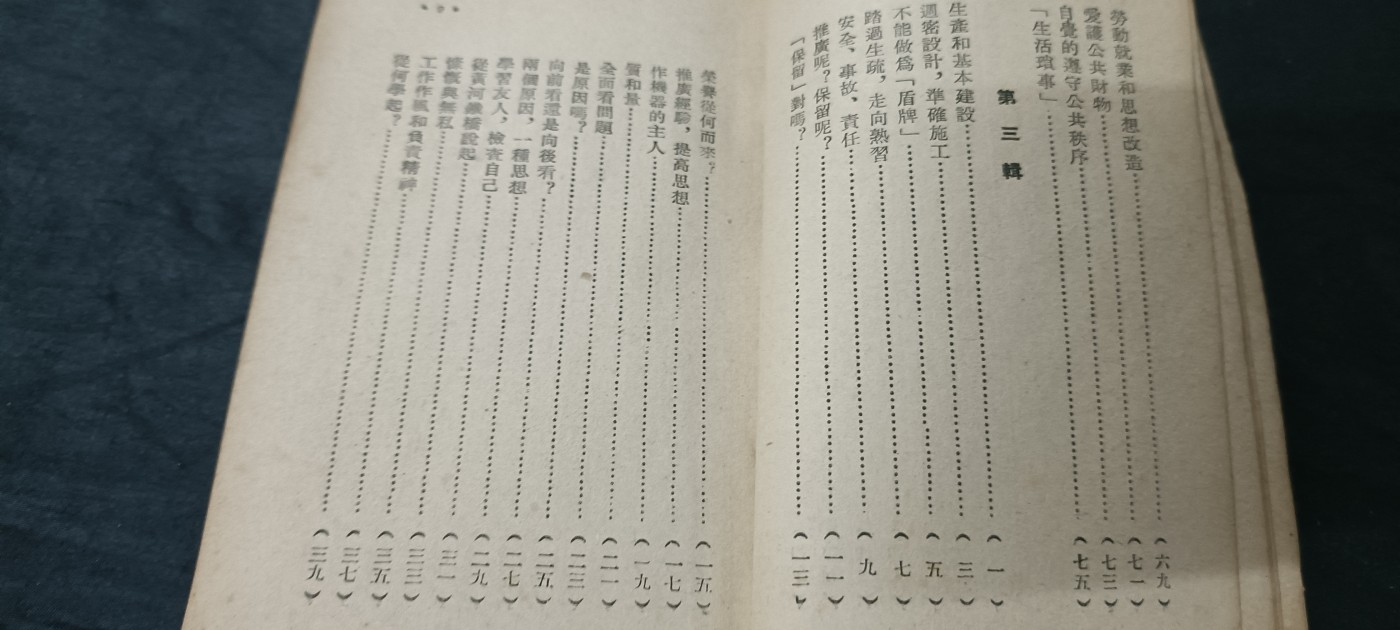 勞動就業和思想改造……(六九)
愛護公共財物……(七一)
自覺的遵守公共秩序……(七三)
「生活瑣事」……(七五)
第三輯
生產和基本建設……(一)
週密設計，準確施工……(三)
不能做爲「盾牌」……(五)
踏過生疏，走向熟習……(七)
安全、事故、責任……(九)
推廣呢？保留呢？……(一一)
「保留」對嗎？……(一三)
榮譽從何而來？……(一五)
推廣經驗，提高思想……(一七)
作機器的主人……(一九)
質和量……(二一)
全面看問題……(二三)
是原因嗎？……(二五)
向前看還是向後看？……(二七)
兩個原因，一種思想……(二九)
學習友人，檢查自己……(三一)
從黃河鐵橋說起……(三三)
慷慨與無私……(三五)
工作作風和負責精神……(三七)
從何學起？……(三九)